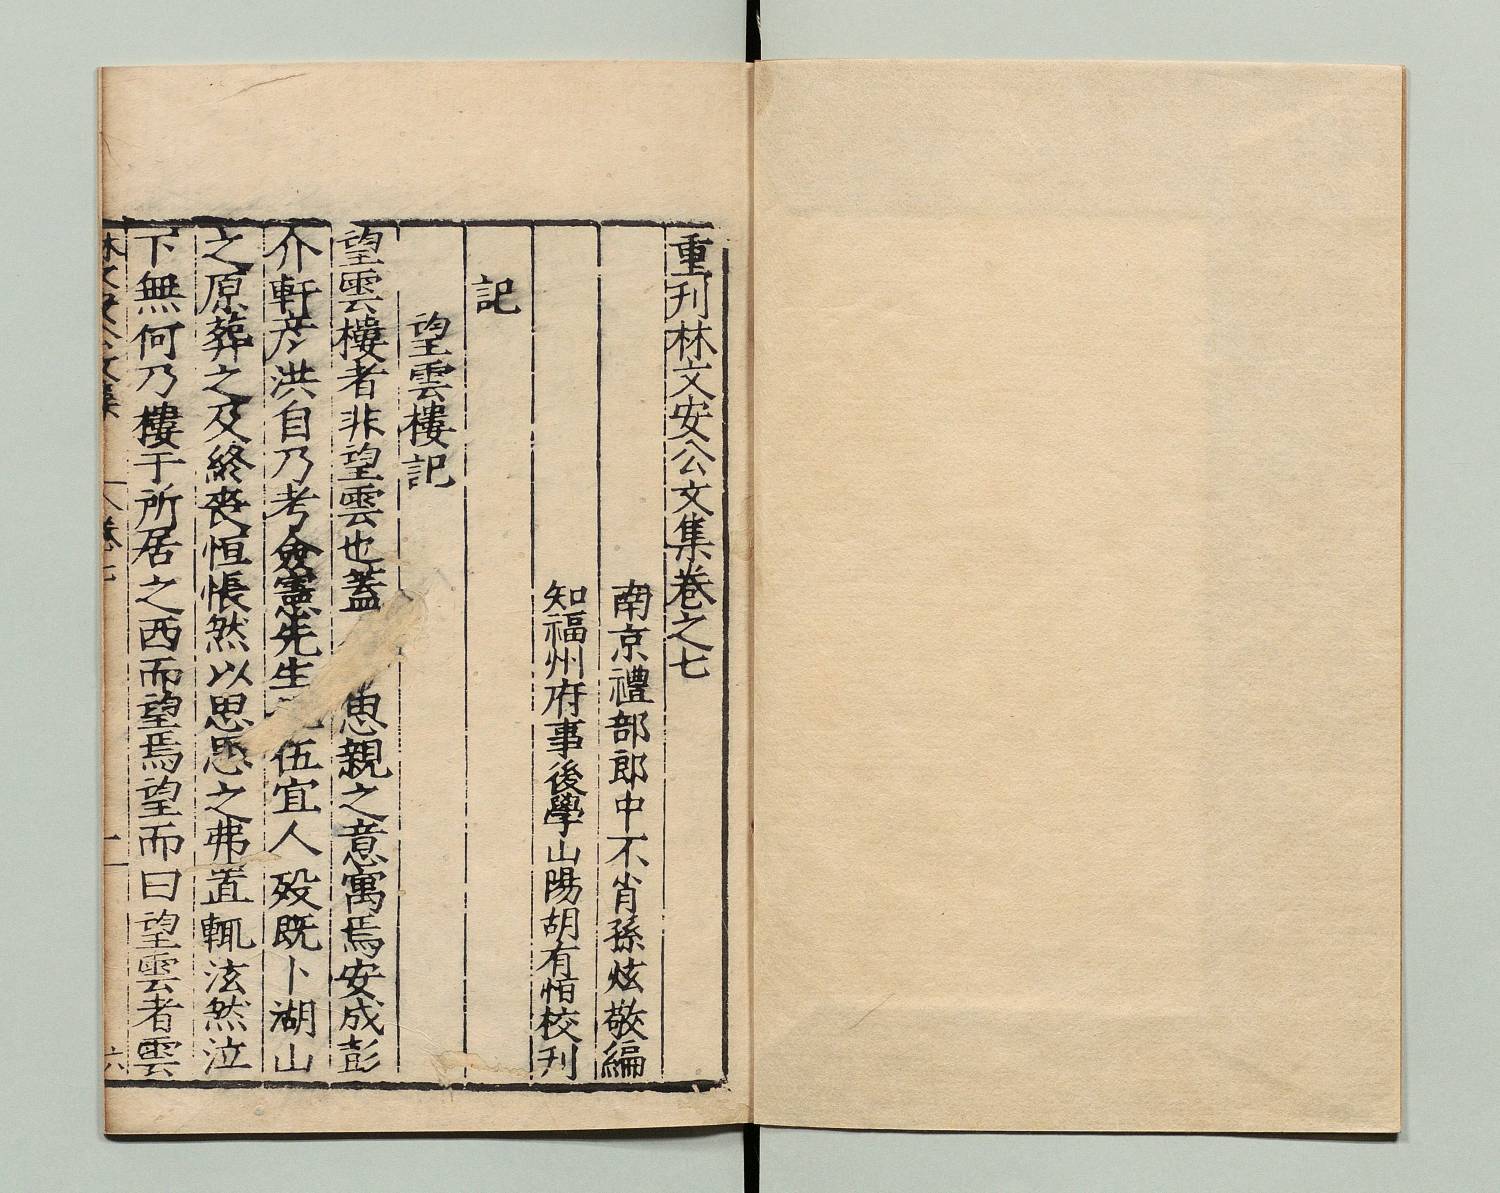 重刊林文安公文集卷之七
南京禮部郎中不肖孫炫敬編
知福州府事後學山陽胡有恒校刊
記
望雲樓記
望雲樓者非望雲也蓋思親之意寓焉安成彭
介軒彦洪自乃考僉憲先生伍宜人歿既卜湖山
之原葬之及終喪恒悵然以思思之弗置輒泫然泣
下無何乃樓于所居之西而望焉望而曰望雲者雲
林文安公文集 卷七 一